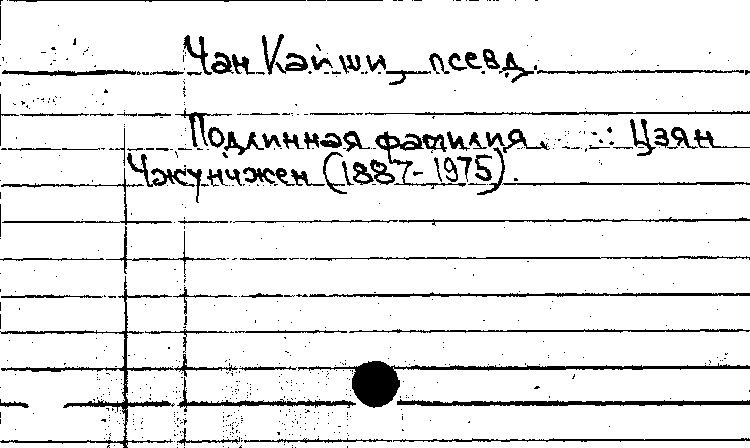 Чан Кайши, псевд.
Подлинная фамилия : Цзян
Чжунчжен (1887-1975).